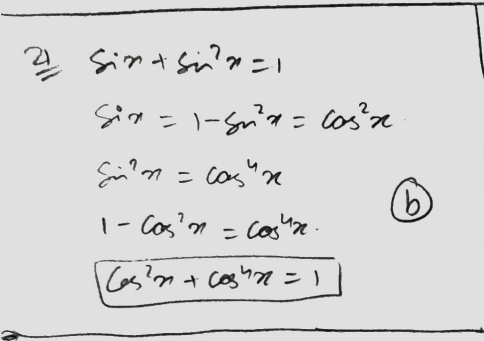 21 Sin x + Sin²x = 1
Sin x = 1 - Sin²x = Cos²x
Sin²x = Cos⁴x
1 - Cos²x = Cos⁴x.
(b)
Cos²x + Cos⁴x = 1